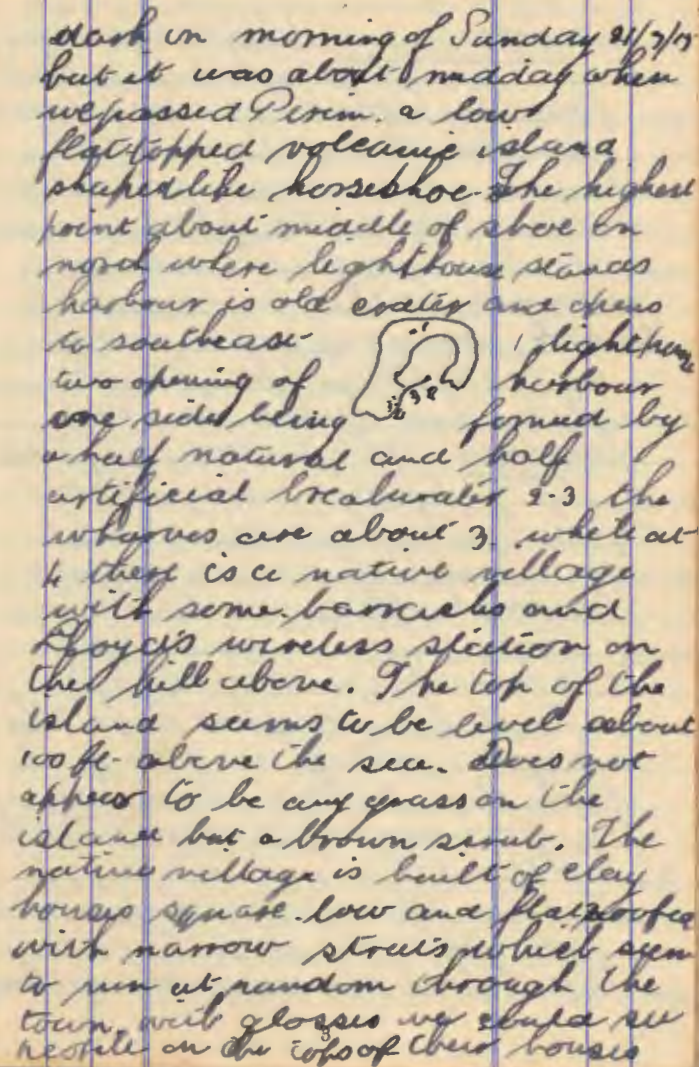 dark in morning of Sunday
but it was about midday when
we passed Perim. a low
flat topped volcanic island
shaped like horseshoe. The highest
point about middle of shoe on
nord where lighthouse stands
harbour is old crater and opens
to southeast 1 lighthouse
two opening of harbour
one side being formed by
a half natural and half
artificial breakwater 2-3 the
wharves are about 3. while at
4 there is a native village
with some barracks and
Lloyds wireless station on
the hill above. The top of the
island seems to be level about
100 ft. above the sea. Does not
appear to be any grass on the
island but a brown scrub. The
native village is built of clay
houses square. low and flat roofed
with narrow streets which seem
to run at random through the
town. with glasses we could see
people on the tops of their houses
3